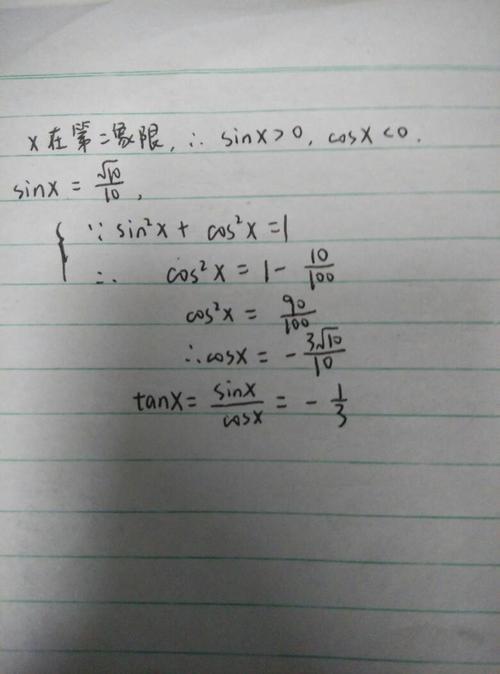 x在第二象限, ∴ sinx>0, cosx<0.
sinx = √10/10,
∵ sin²x + cos²x = 1
∴ cos²x = 1 - 10/100
cos²x = 90/100
∴ cosx = - 3√10/10
tanx = sinx/cosx = - 1/3